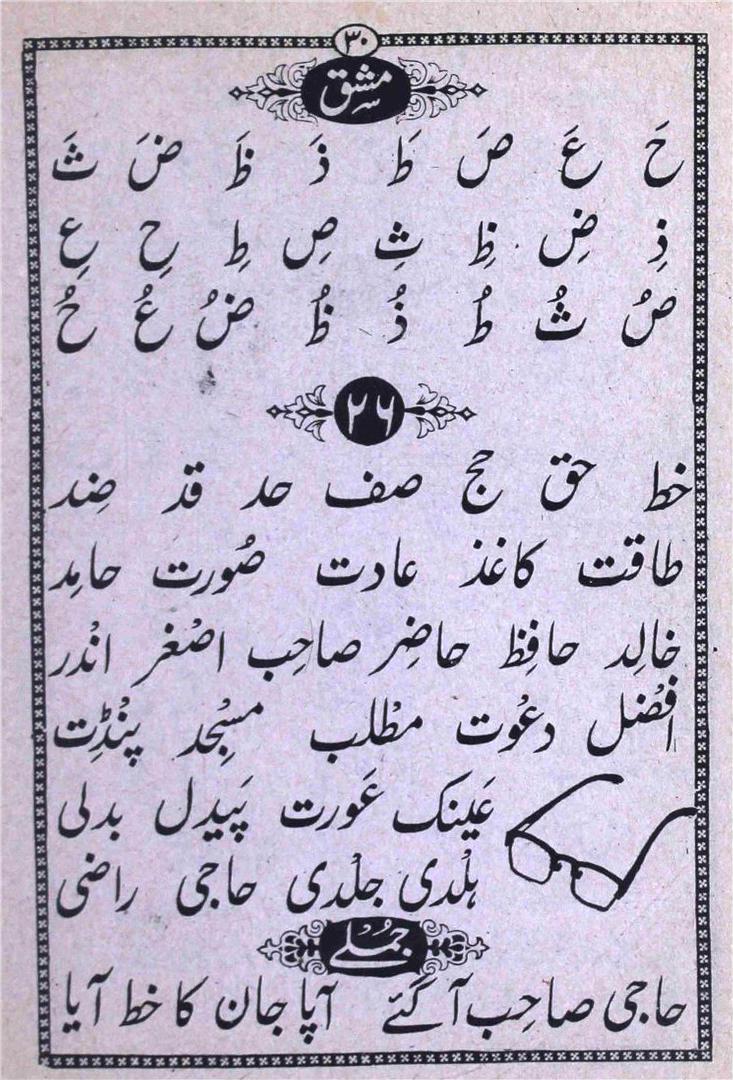 ۳۰
مشق
حَ عَ صَ طَ ذَ ظَ ضَ ثَ
ذِ ضِ ظِ ثِ صِ طِ حِ عِ
صُ ثُ طُ ذُ ظُ ضُ عُ حُ
۲۶
خط حق حج صف حد قد ضِد
طاقت کاغذ عادت صُورت حامِد
خالِد حافِظ حاضِر صاحِب اصْغر انْدر
افْضل دعْوت مطْلب مسْجِد پنْڈِت
عَینک عَورت پَیدل بدلی
ہلْدی جلْدی حاجی راضی
جُملے
حاجی صاحِب آگئے آپا جان کا خط آیا